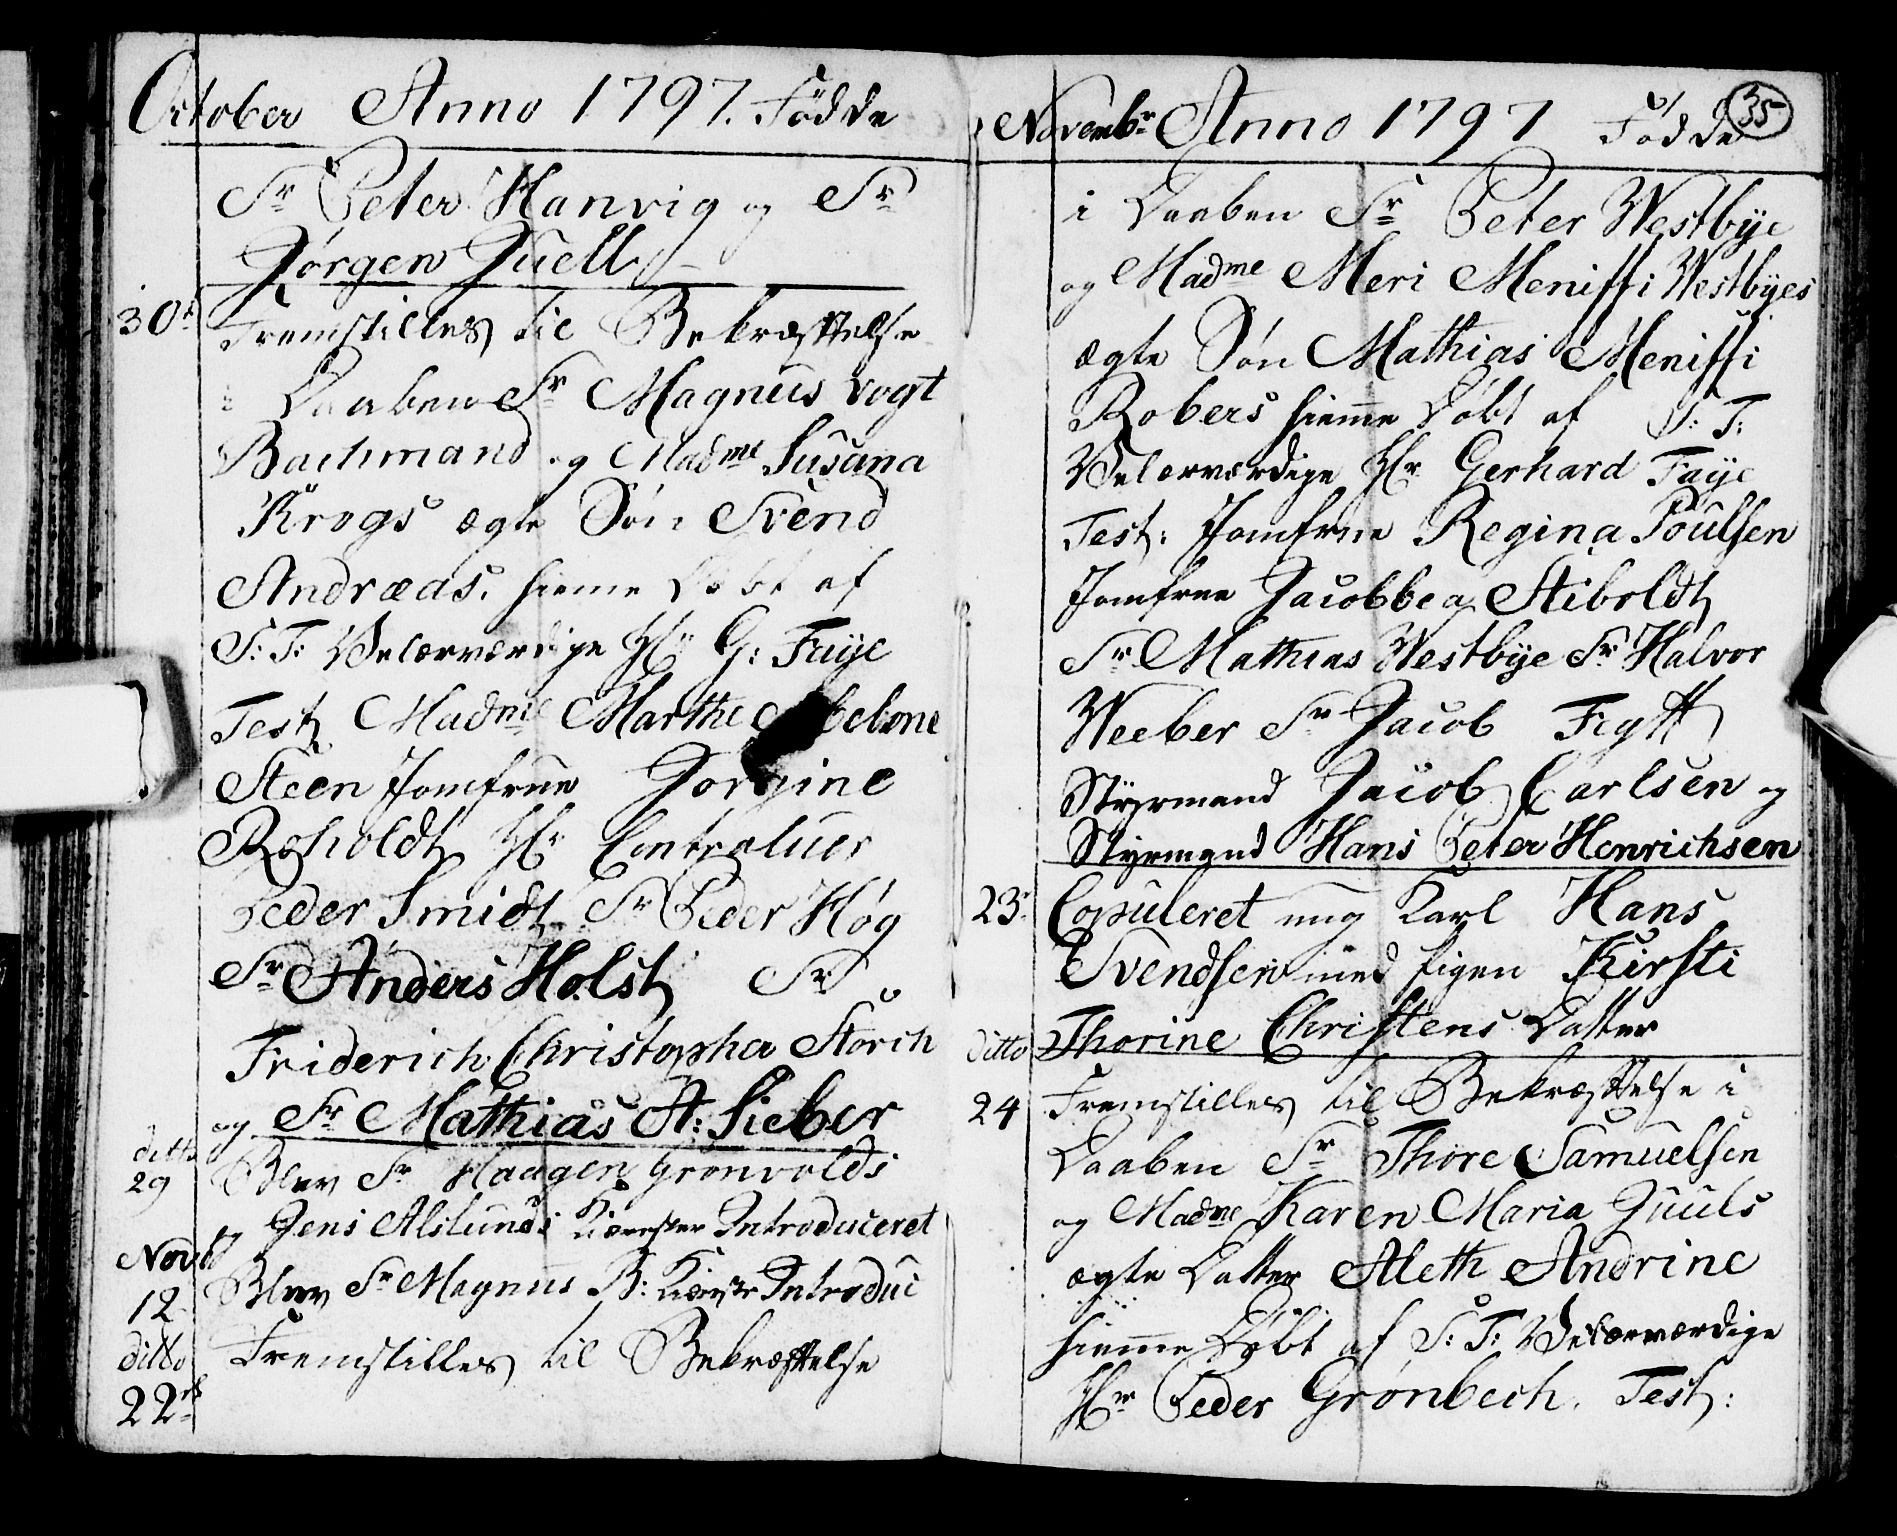 October Anno 1797. Födde
Sr Peter Hanvig og Sr
Jørgen Juell
30t Fremstilles til Bekræftelse
i Daaben Sr Magnus Vogt
Bachmand og Madme Susana
Krogs ægte Søn Svend
Andræas. hieme Døbt af
S: T: Velærværdige Hr G: Faye
Test Madme Marthe Abelone
Steen Jomfrue Jorgine
Roholdt Hr Contraluer
Peder Smidt Sr Peder Høg
Sr Anders Holst Sr
Friderich Christopher Storch
og Sr Mathias A: Sieber
ditto
29 Blev Sr Haagen Grönvolds
og Jens Aslunds Kiærester Introduceret
Novbr
12 Blev Sr Magnus B: Kiæreste Introduc
ditto
22de Fremstilles til Bekræftelse
Novembr Anno 1797 Födde 35
i Daaben Sr Peter Westbye
og Madme Meri Meniffi Westbyes
ægte Søn Mathias Meniffi
Robers hieme Døbt af S: T:
Velærværdige Hr Gerhard Faye
Test: Jomfrue Regina Poulsen
Jomfrue Jacobbea Stiboldt
Sr Mathias Westbye Sr Halvor
Weeber Sr Jacob Fegtt
Styrmand Jacob Carlsen og
Styrmand Hans Peter Henrichsen
23 Copuleret ung Karl Hans
Svendsen med Pigen Kirsti
Thorine Christens Datter
ditto
24 Fremstilles til Bekræftelse i
Daaben Sr Thore Samuelsen
og Madme Karen Maria Juuls
ægte Datter Aleth Andrine
hieme Døbt af S: T: Velærværdige
Hr Peder Grönbech. Test: